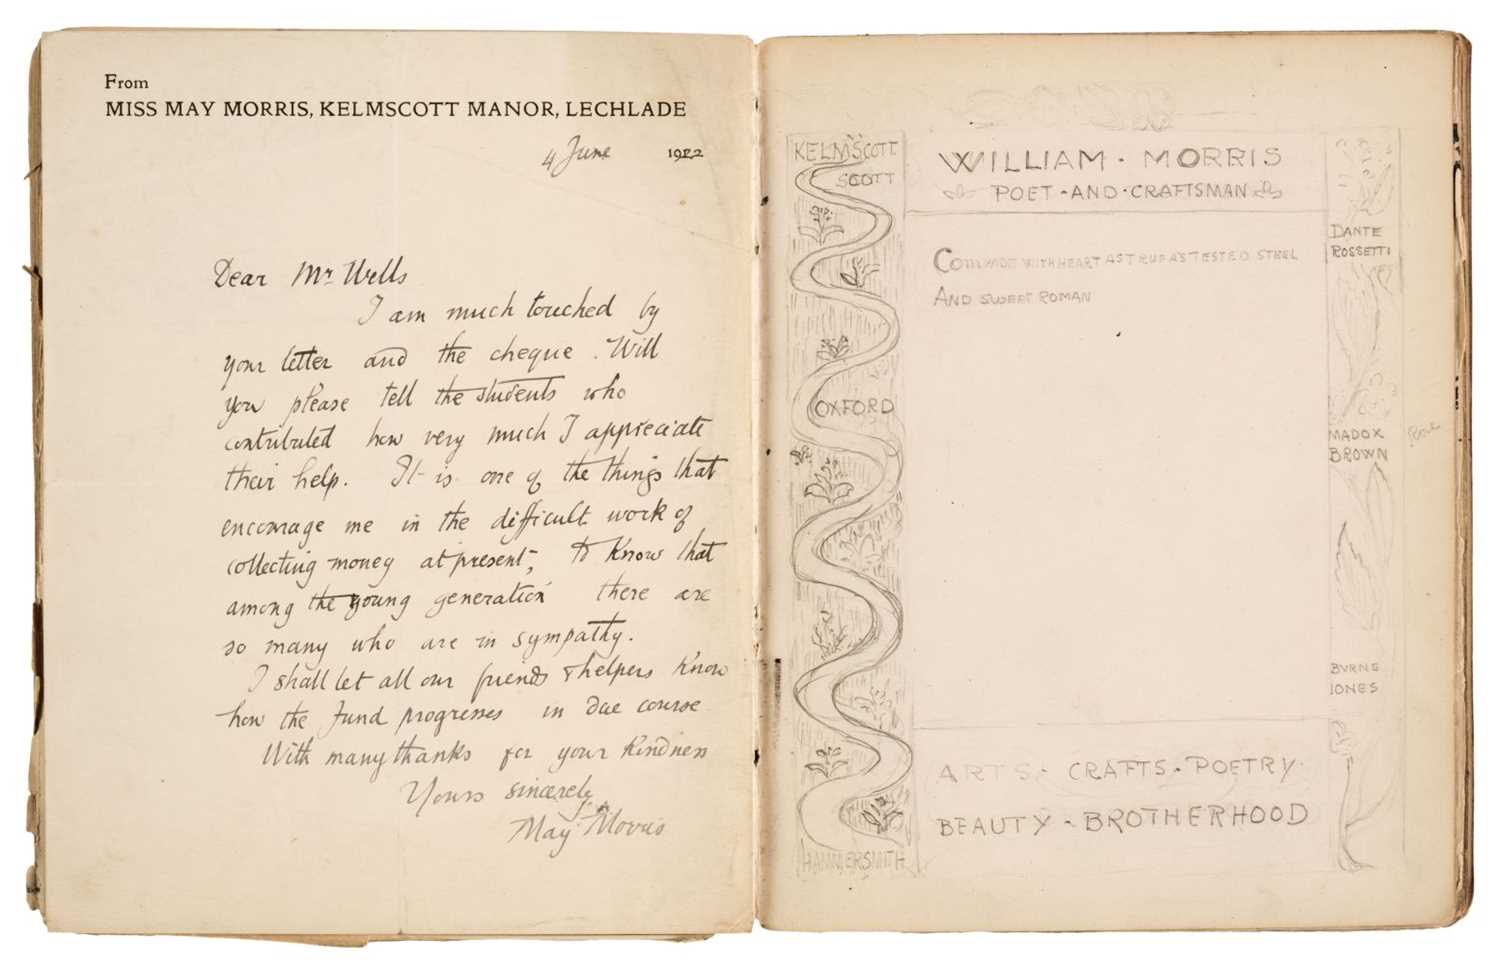 From
MISS MAY MORRIS, KELMSCOTT MANOR, LECHLADE
4 June 1922
Dear Mr Wells
I am much touched by
your letter and the cheque. Will
you please tell the students who
contributed how very much I appreciate
their help. It is one of the things that
encourage me in the difficult work of
collecting money at present, to know that
among the young generation there are
so many who are in sympathy.
I shall let all our friends & helpers know
how the Fund progresses in due course
With many thanks for your kindness
Yours sincerely
May Morris
KELMSCOTT
SCOTT
OXFORD
HAMMERSMITH
WILLIAM · MORRIS
POET · AND · CRAFTSMAN
WITH HEART AS TRUE AS TESTED STEEL
AND SWEET ROMAN
ARTS · CRAFTS · POETRY ·
BEAUTY - BROTHERHOOD
DANTE
ROSSETTI
MADOX
BROWN
BURNE
JONES